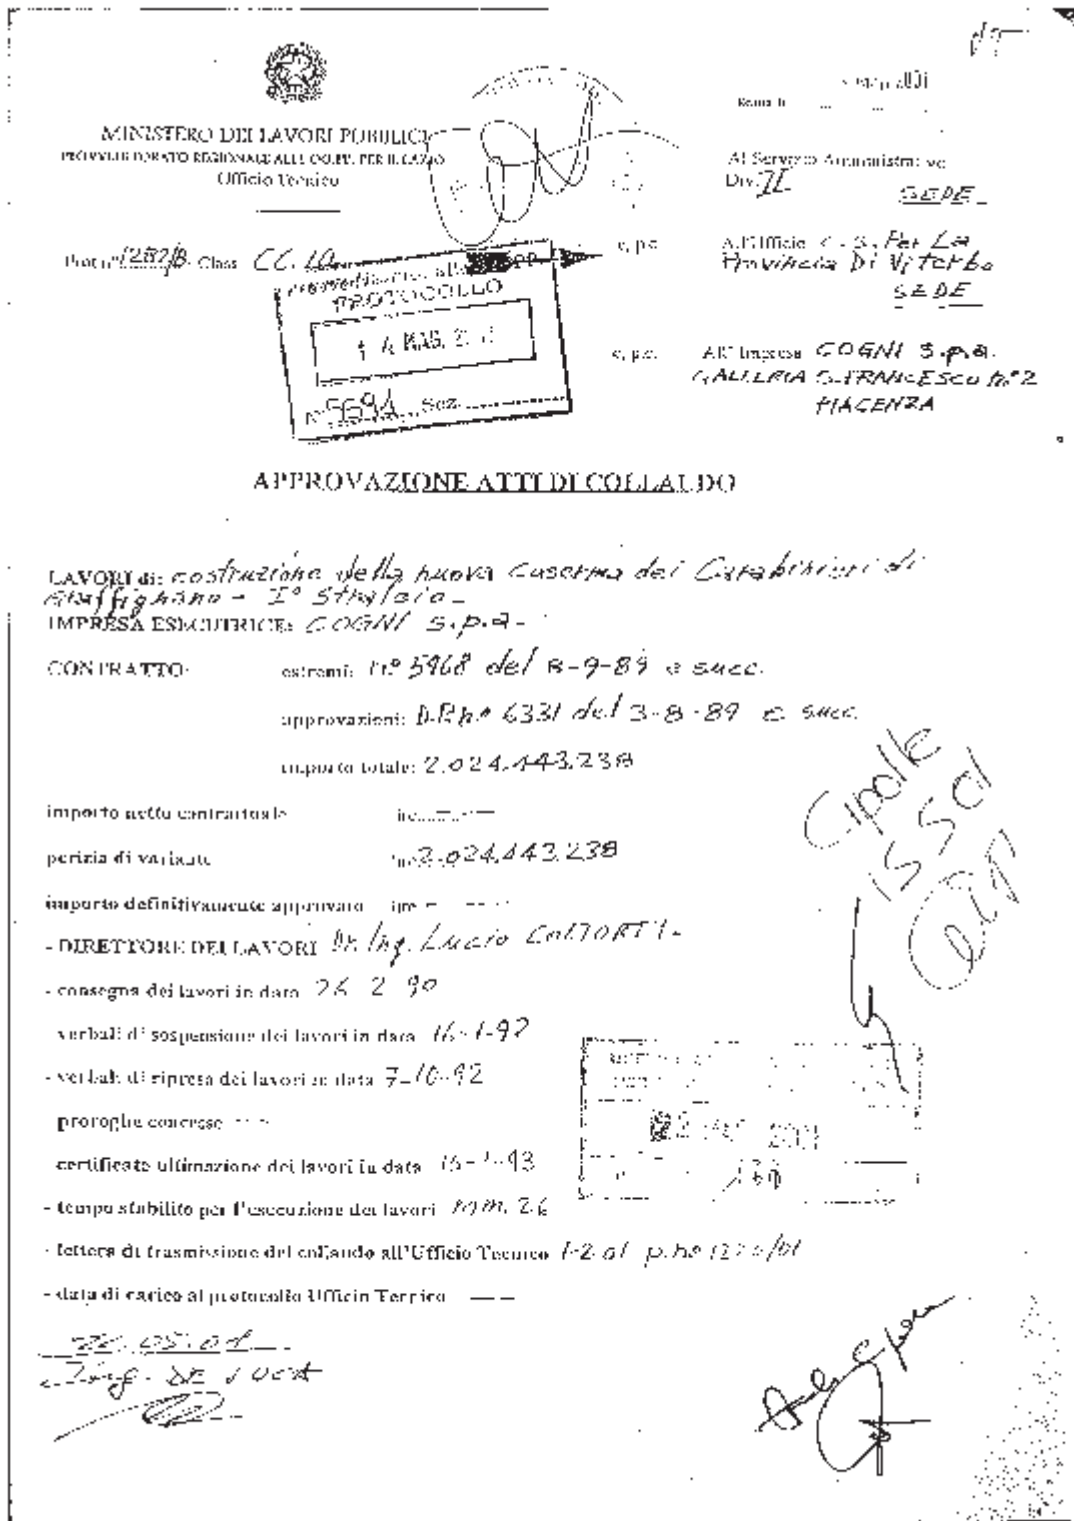 MINISTERO DEI LAVORI PUBBLICI
PROVVEDITORATO REGIONALE ALLE OO.PP. PER IL LAZIO
Ufficio Tecnico
Roma li
Al Servizio Amministrativo
Div. II
SEDE
Prot n° 1282/B Class CC.10
e, p.c.
All'Ufficio C.S. Per La
Provincia Di Viterbo
SEDE
PROTOCOLLO
14 MAG.
N° 5694 Sez.
e, p.c.
All' Impresa COGNI S.p.a.
GALLERIA S.FRANCESCO n° 2
PIACENZA
APPROVAZIONE ATTI DI COLLAUDO
LAVORI di: costruzione della nuova caserma dei Carabinieri di
Graffignano - I° Stralcio -
IMPRESA ESECUTRICE: COGNI S.p.a. -
CONTRATTO: estremi: n° 5968 del 8-9-89 e succ.
approvazioni: D.P. n° 6331 del 3-8-89 e succ.
importo totale: 2.024.443.238
importo netto contrattuale lire
perizia di variante lire 2.024.443.238
importo definitivamente approvato lire
- DIRETTORE DEI LAVORI Dr. Ing. Lucio
- consegna dei lavori in data 26 2 90
verbali di sospensione dei lavori in data 16-1-92
- verbali di ripresa dei lavori in data 7-10-92
proroghe concesse
certificato ultimazione dei lavori in data
- tempo stabilito per l'esecuzione dei lavori mm. 26
- lettera di trasmissione del collaudo all'Ufficio Tecnico 1-2-01 p. n°
- data di carico al protocollo Ufficio Tecnico
2001
Ing. DE LUCA